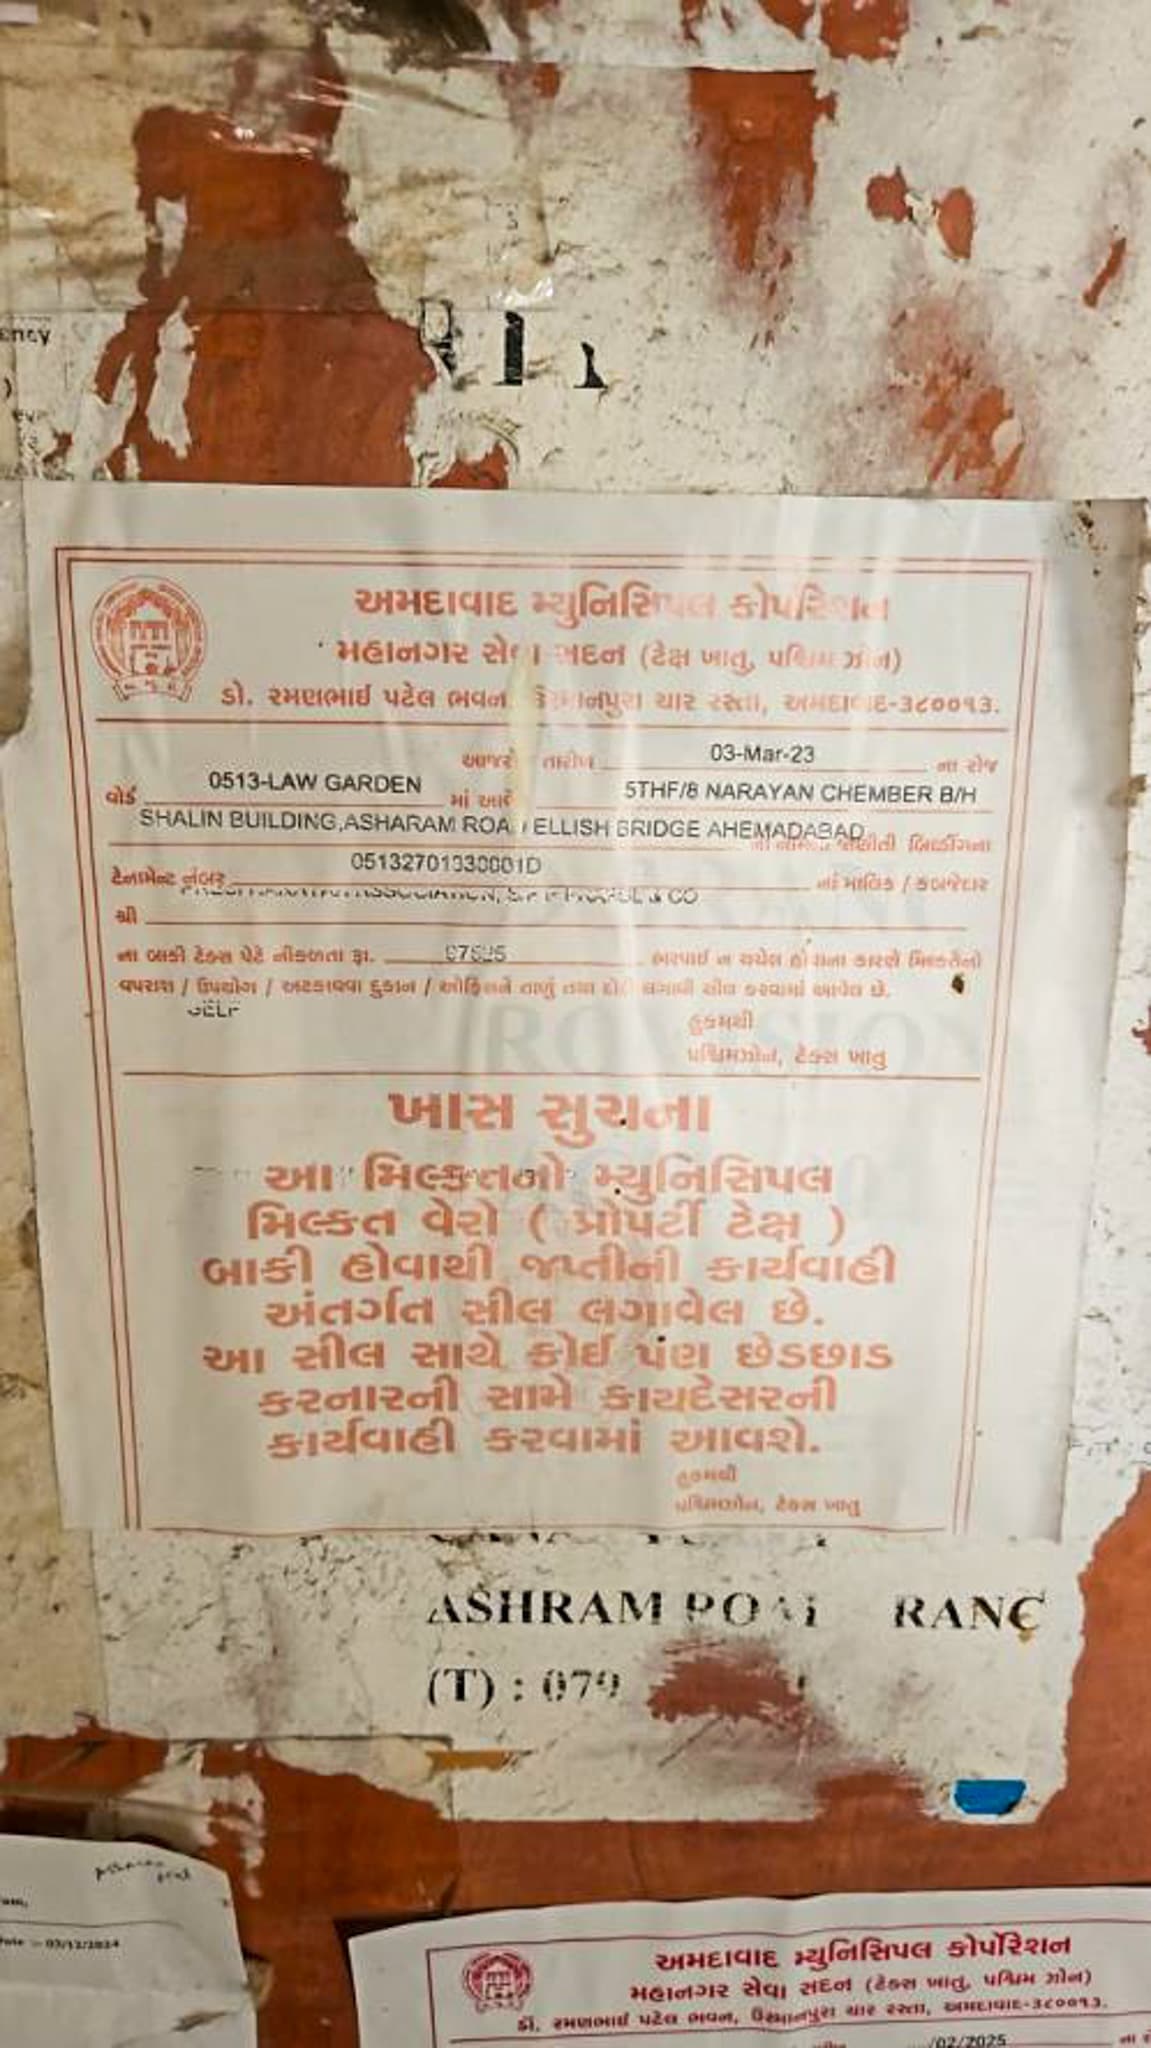 ency
અમદાવાદ મ્યુનિસિપલ કોર્પોરેશન
મહાનગર સેવા સદન (ટેક્ષ ખાતુ, પશ્ચિમ ઝોન)
ડો. રમણભાઈ પટેલ ભવન ઉસ્માનપુરા ચાર રસ્તા, અમદાવાદ-૩૮૦૦૧૩.
આજરોજ તારીખ 03-Mar-23 ના રોજ
વોર્ડ 0513-LAW GARDEN માં આવેલ 5THF/8 NARAYAN CHEMBER B/H
SHALIN BUILDING,ASHARAM ROAD ELLISH BRIDGE AHEMADABAD ના નામથી જાણીતી બિલ્ડીંગના
ટેનામેન્ટ નંબર 05132701330001D નાં માલિક / કબજેદાર
શ્રી & CO
ના બાકી ટેક્સ પેટે નીકળતા રૂા. ભરપાઈ ન થયેલ હોવાના કારણે મિલકતનો
વપરાશ / ઉપયોગ / અટકાવવા દુકાન / ઓફિસને તાળું તથા દોરી લગાવી સીલ કરવામાં આવેલ છે.
SELF
હુકમથી
પશ્ચિમઝોન, ટેક્સ ખાતુ
ખાસ સુચના
આ મિલ્કતનો મ્યુનિસિપલ
મિલ્કત વેરો ( પ્રોપર્ટી ટેક્ષ )
બાકી હોવાથી જપ્તીની કાર્યવાહી
અંતર્ગત સીલ લગાવેલ છે.
આ સીલ સાથે કોઈ પણ છેડછાડ
કરનારની સામે કાયદેસરની
કાર્યવાહી કરવામાં આવશે.
હુકમથી
પશ્ચિમઝોન, ટેક્સ ખાતુ
ASHRAM ROAD RANC
(T) : 079
Date :- 03/12/2024
અમદાવાદ મ્યુનિસિપલ કોર્પોરેશન
મહાનગર સેવા સદન (ટેક્સ ખાતુ, પશ્ચિમ ઝોન)
ડૉ. રમણભાઈ પટેલ ભવન, ઉસ્માનપુરા ચાર રસ્તા, અમદાવાદ-૩૮૦૦૧૩.
/02/2025 ના